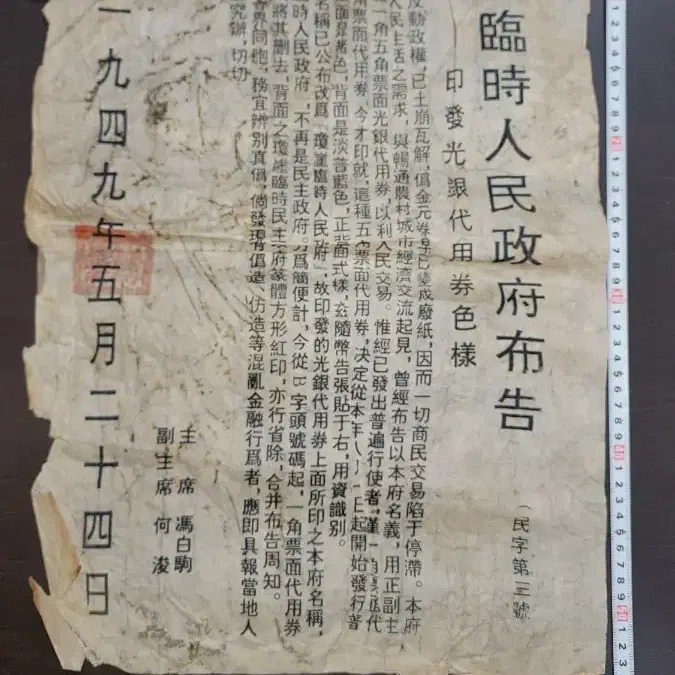 臨時人民政府布告
印發光銀代用券色樣
（民字第三號
反動政權，已土崩瓦解，僞金元券早已變成廢紙，因而一切商民交易陷于停滯。本府
人民生活之需求，與暢通農村城市經濟交流起見，曾經布告以本府名義，用正副主
一角五角票面光銀代用券，以利人民交易。惟經已發出普遍行使者，僅一角票面代
票面代用券，今才印就，這種五角票面代用券，决定從本年 月 日起開始發行普
面是 色，背面是淡普藍色，正背面式樣，茲隨幣告張貼于右，用資識别。
名稱已公布改爲「瓊崖臨時人民政府」故印發的光銀代用券上面所印之本府名稱，
時人民政府，不再是民主政府。爲簡便計，今從B字頭號碼起，一角票面代用券
將其删去，背面之瓊崖臨時民主政府篆體方形紅印，亦行省除，合并布告周知。
各界同胞，務宜辨别真僞，倘發現有僞造、仿造等混亂金融行爲者，應即具報當地人
究辦，切切
主席 馮白駒
副主席 何浚
一九四九年五月二十四日